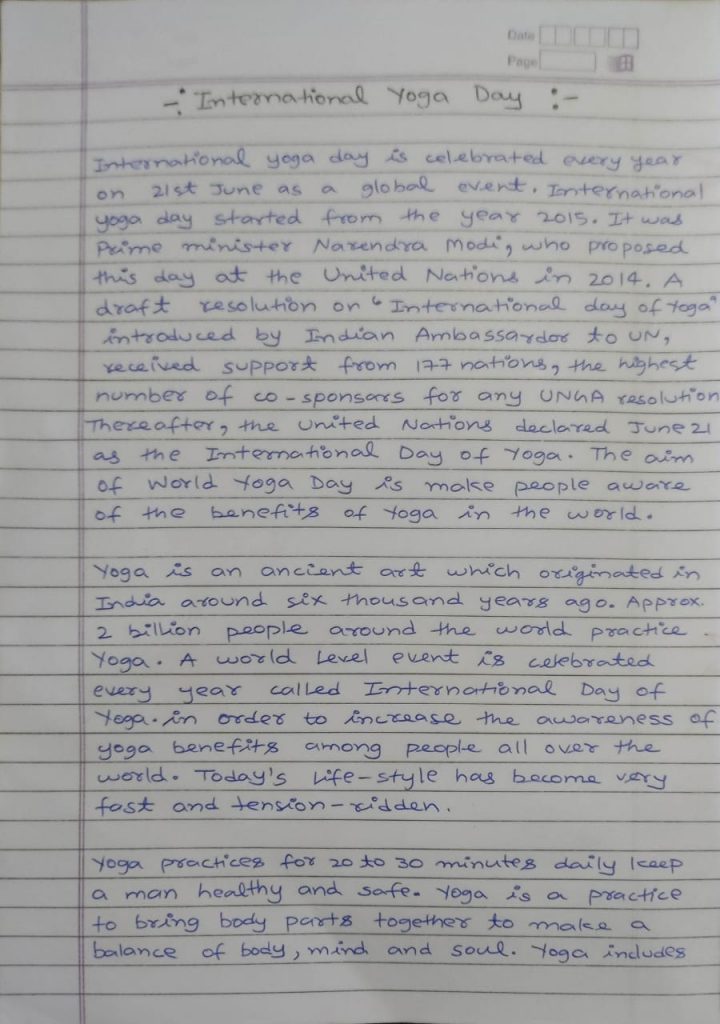 Date
Page
-: International Yoga Day :-
International yoga day is celebrated every year
on 21st June as a global event. International
yoga day started from the year 2015. It was
Prime minister Narendra Modi, who proposed
this day at the United Nations in 2014. A
draft resolution on "International day of Yoga"
introduced by Indian Ambassardor to UN,
received support from 177 nations, the highest
number of co-sponsars for any UNGA resolution
Thereafter, the United Nations declared June 21
as the International Day of Yoga. The aim
of World Yoga Day is make people aware
of the benefits of Yoga in the world.
Yoga is an ancient art which originated in
India around six thousand years ago. Approx.
2 billion people around the world practice
Yoga. A world level event is celebrated
every year called International Day of
Yoga. in order to increase the awareness of
yoga benefits among people all over the
world. Today's life-style has become very
fast and tension-ridden.
Yoga practices for 20 to 30 minutes daily keep
a man healthy and safe. Yoga is a practice
to bring body parts together to make a
balance of body, mind and soul. Yoga includes